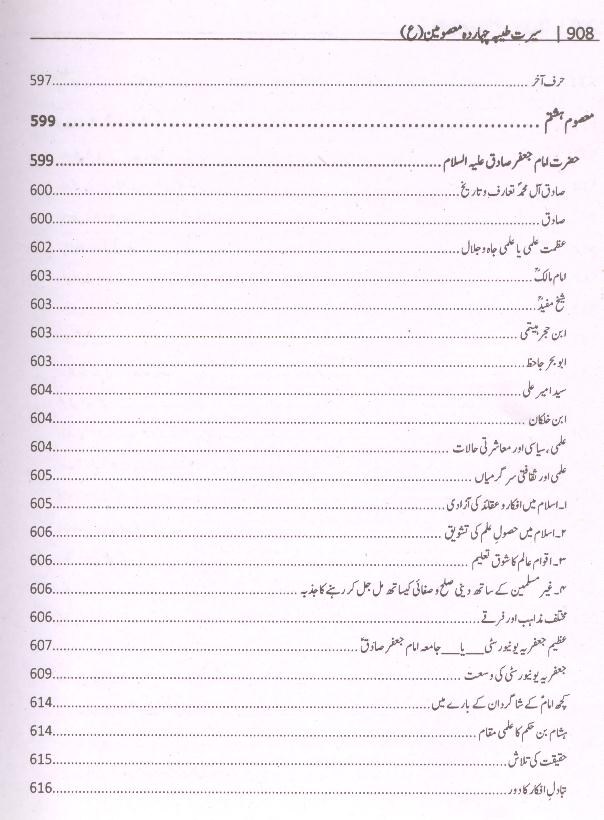 908 | سیرت طیبہ چہاردہ معصومین (ع)
حرف آخر ........ 597
معصوم ہشتم ........ 599
حضرت امام جعفر صادق علیہ السلام ........ 599
صادق آل محمدؐ تعارف و تاریخ ........ 600
صادق ........ 600
عظمت علمی یا علمی جاہ و جلال ........ 602
امام مالکؒ ........ 603
شیخ مفیدؒ ........ 603
ابن حجر ہیتمی ........ 603
ابو بحر جاحظ ........ 603
سید امیر علی ........ 604
ابن خلکان ........ 604
علمی، سیاسی اور معاشرتی حالات ........ 604
علمی اور ثقافتی سرگرمیاں ........ 605
۱۔ اسلام میں افکار و عقائد کی آزادی ........ 605
۲۔ اسلام میں حصولِ علم کی تشویق ........ 606
۳۔ اقوام عالم کا شوق تعلیم ........ 606
۴۔ غیر مسلمین کے ساتھ دینی صلح و صفائی کیساتھ مل جل کر رہنے کا جذبہ ........ 606
مختلف مذاہب اور فرقے ........ 606
عظیم جعفریہ یونیورسٹی__یا__جامعہ امام جعفر صادقؑ ........ 607
جعفریہ یونیورسٹی کی وسعت ........ 609
کچھ امامؑ کے شاگردان کے بارے میں ........ 614
ہشام بن حکم کا علمی مقام ........ 614
حقیقت کی تلاش ........ 615
تبادلِ افکار کا دور ........ 616